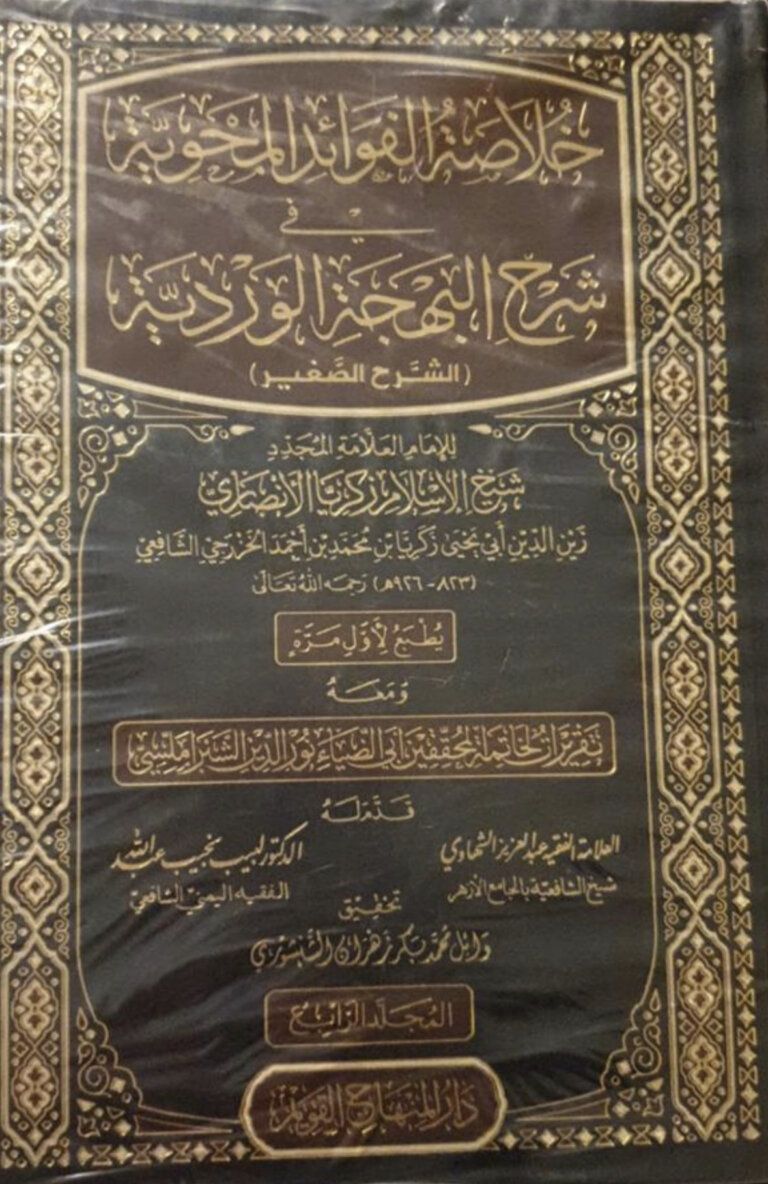 خُلَاصَةُ الفَوَائِدِ المَحْوِيَّة
في
شَرْحِ البَهْجَةِ الوَرْدِيَّة
(الشَّرْح الصَّغير)
لِلإِمَامِ العَلَّامَةِ المُجَدِّدِ
شَيْخِ الإِسْلَامِ زَكَرِيَّا الأَنْصَارِي
زَيْنِ الدِّيْنِ أَبِي يَحْيَى زَكَرِيَّا بْنِ مُحَمَّدِ بْنِ أَحْمَدَ الخَزْرَجِيِّ الشَّافِعِيِّ
(٨٢٣ - ٩٢٦هـ) رَحِمَهُ اللهُ تَعَالَى
يُطْبَعُ لِأَوَّلِ مَرَّةٍ
وَمَعَهُ
تَقْرِيرَاتُ خَاتِمَةِ المُحَقِّقِينَ أَبِي الضِّيَاءِ نُورِ الدِّينِ الشَّبْرَامَلِّسِي
قَدَّمَ لَهُ
العلامة الفقيه عبد العزيز الشهاوي
الدكتور لبيب نجيب عبد الله
شيخ الشافعية بالجامع الأزهر
الفقيه اليمني الشافعي
تحقيق
وائل محمد بكر زهران الشنشوري
المُجَلَّد الرَّابِع
دَارُ المِنْهَاجِ القَوِيْم